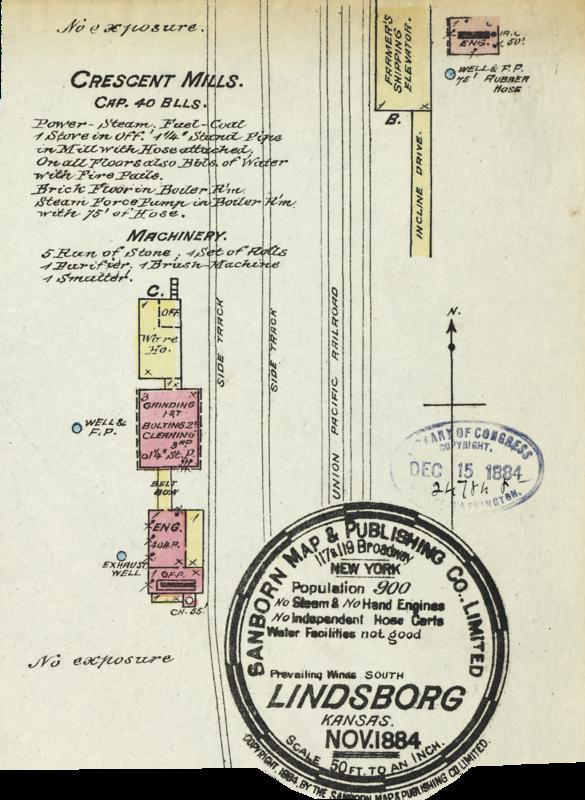 No exposure.
CRESCENT MILLS.
CAP. 40 BLLS.
Power-Steam, Fuel-Coal
1 Store in Off. 1¼" Stand Pipe
in Mill with Hose attached,
On all Floors also Bbls. of Water
with Fire Pails.
Brick Floor in Boiler R'm.
Steam Force Pump in Boiler R'm.
with 75' of Hose.
MACHINERY.
5 Run of Stone, 1 Set of Rolls
1 Purifier, 1 Brush-Machine
1 Smutter.
FARMER'S
SHIPPING
ELEVATOR.
B.
INCLINE DRIVE.
ENG.
50'
WELL & F.P.
75' RUBBER
HOSE
C.
OFF.
Ware
Ho.
SIDE TRACK
SIDE TRACK
UNION PACIFIC RAILROAD
N.
3
GRINDING
1ST
BOLTING 2D
CLEANING
3RD
1¼" St. P.
WELL &
F.P.
BELT
BOX
ENG.
40 H.P.
1
EXHAUST
WELL
CH. 55'
No exposure
LIBRARY OF CONGRESS
COPYRIGHT.
DEC 15 1884
WASHINGTON.
SANBORN MAP & PUBLISHING CO., LIMITED
117 & 119 Broadway
NEW YORK
Population 900
No Steam & No Hand Engines
No Independent Hose Carts
Water Facilities not good
Prevailing Winds SOUTH
LINDSBORG
KANSAS.
NOV. 1884
SCALE 50 FT. TO AN INCH.
COPYRIGHT, 1884, BY THE SANBORN MAP & PUBLISHING CO. LIMITED.